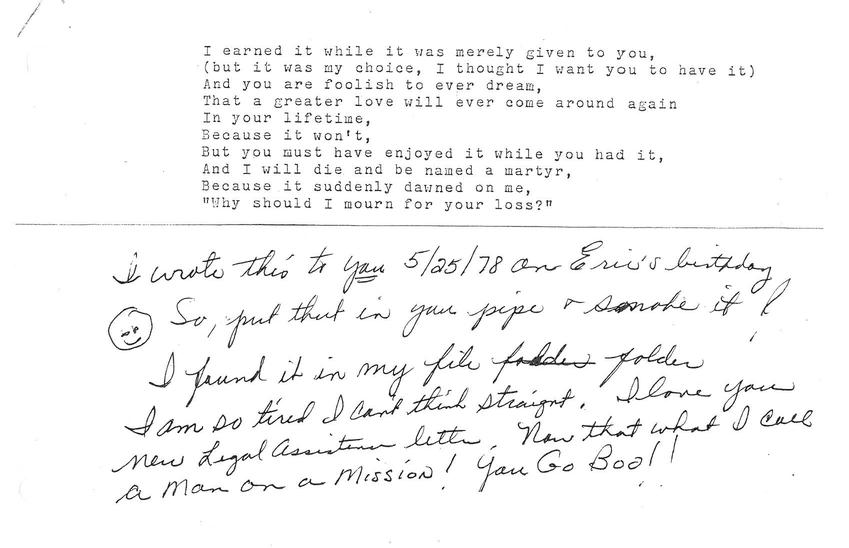 I earned it while it was merely given to you,
(but it was my choice, I thought I want you to have it)
And you are foolish to ever dream,
That a greater love will ever come around again
In your lifetime,
Because it won't,
But you must have enjoyed it while you had it,
And I will die and be named a martyr,
Because it suddenly dawned on me,
"Why should I mourn for your loss?"
I wrote this to you 5/25/78 on Eric's birthday
So, put that in you pipe & smoke it!
I found it in my file folder folder
I am so tired I can't think straight. I love you
new Legal Assistence letter. Now that what I call
a Man on a Mission! You Go Boo!!